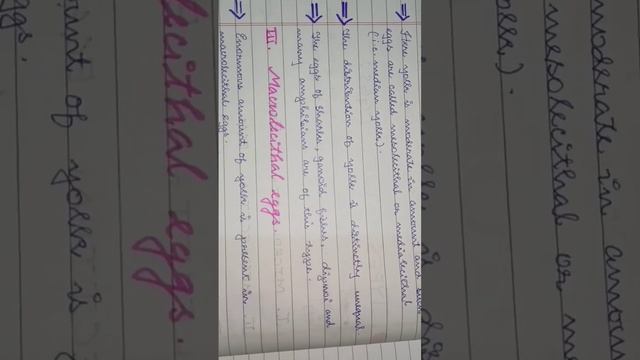 ⇒ Here yolk is moderate in amount and such
eggs are called mesolecithal or medialecithal
(i.e. median yolk).
⇒ The distribution of yolk is distinctly unequal.
⇒ The eggs of sharks, ganoid fishes, dipnoi and
many amphibians are of this type.
III. Macrolecithal eggs.
⇒ Enormous amount of yolk is present in
macrolecithal eggs.